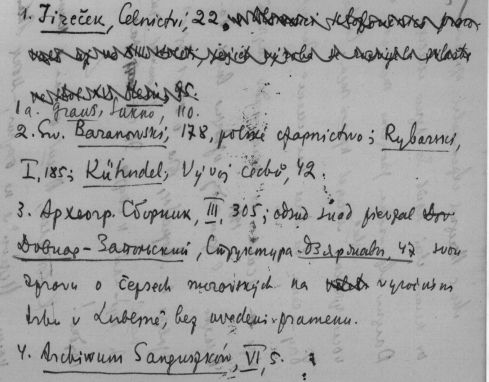 1. Jireček, Celnictví, 22,
1a. Graus, Sukno, 110.
2. Sv. Baranowski, 178, polské czapnictwo; Rybarski,
I, 185; Kühndel, Vývoj cechů, 42.
3. Археогр. Сборник, III, 305; odsud snad převzal
Довнар-Запольский, Структура дзяржавы, 47 svou
zprávu o čepcích moravských na výročním
trhu v Lubecně, bez uvedení pramenu.
4. Archiwum Sanguszków, VI, 5.